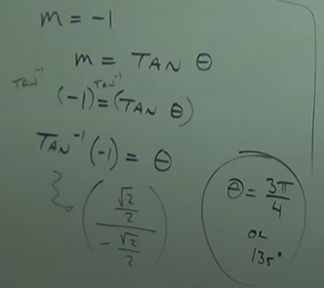 m = -1
m = TAN θ
TAN⁻¹ (-1) = TAN⁻¹ (TAN θ)
TAN⁻¹ (-1) = θ
(√2/2 / -√2/2)
θ = 3π/4
OR
135°